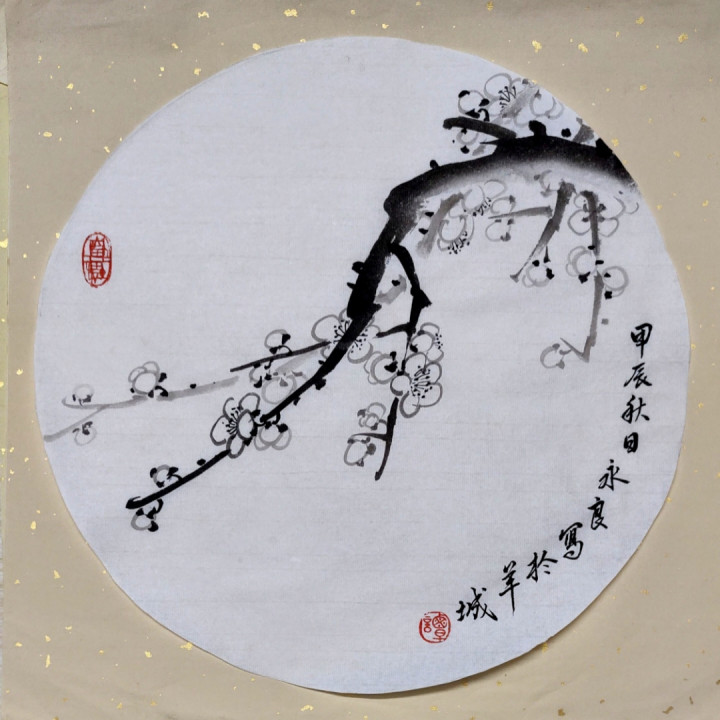 甲辰秋日永良寫於羊城
譚